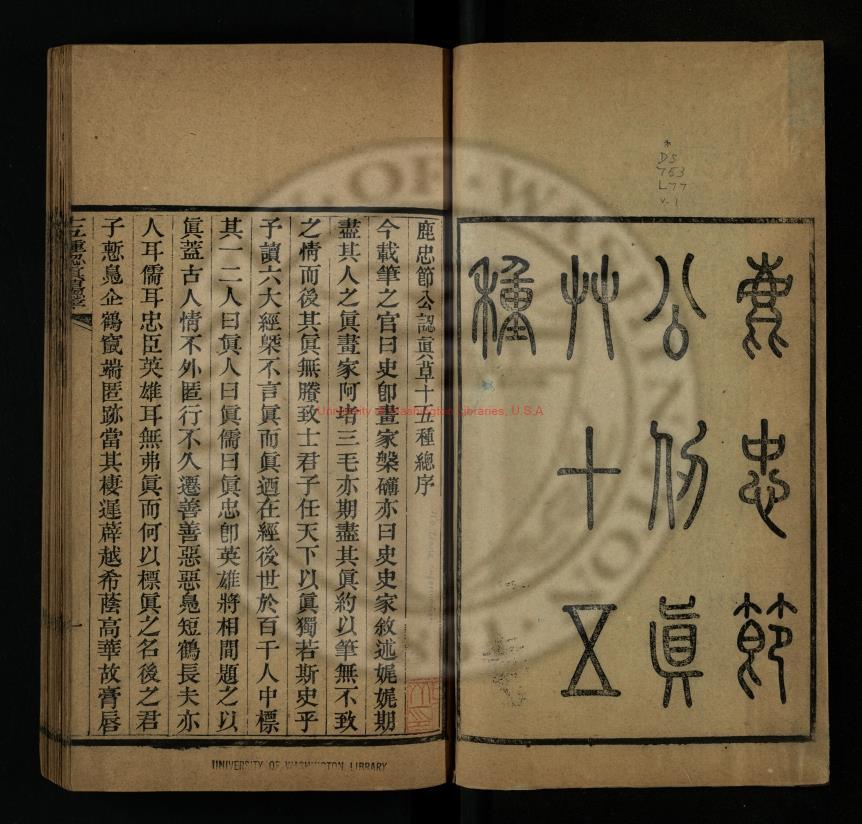 鹿忠節
公認眞
艸十五
種
*
DS
753
L77
v.1
鹿忠節公認眞草十五種總序
今載筆之官曰史卽畫家槃礴亦曰史史家敘述娓娓期
盡其人之眞畫家阿堵三毛亦期盡其眞約以筆無不致
之情而後其眞無賸致士君子任天下以眞獨若斯史乎
予讀六大經槩不言眞而眞迺在經後世於百千人中標
其一二人曰眞人曰眞儒曰眞忠卽英雄將相間題之以
眞蓋古人情不外匿行不久遷善善惡惡鳧短鶴長夫亦
人耳儒耳忠臣英雄耳無弗眞而何以標眞之名後之君
子慙鳧企鶴竄端匿跡當其棲遲薜越希蔭高華故膏唇
一
University of Washington Libraries, U.S.A
UNIVERSITY OF WASHINGTON LIBRARY